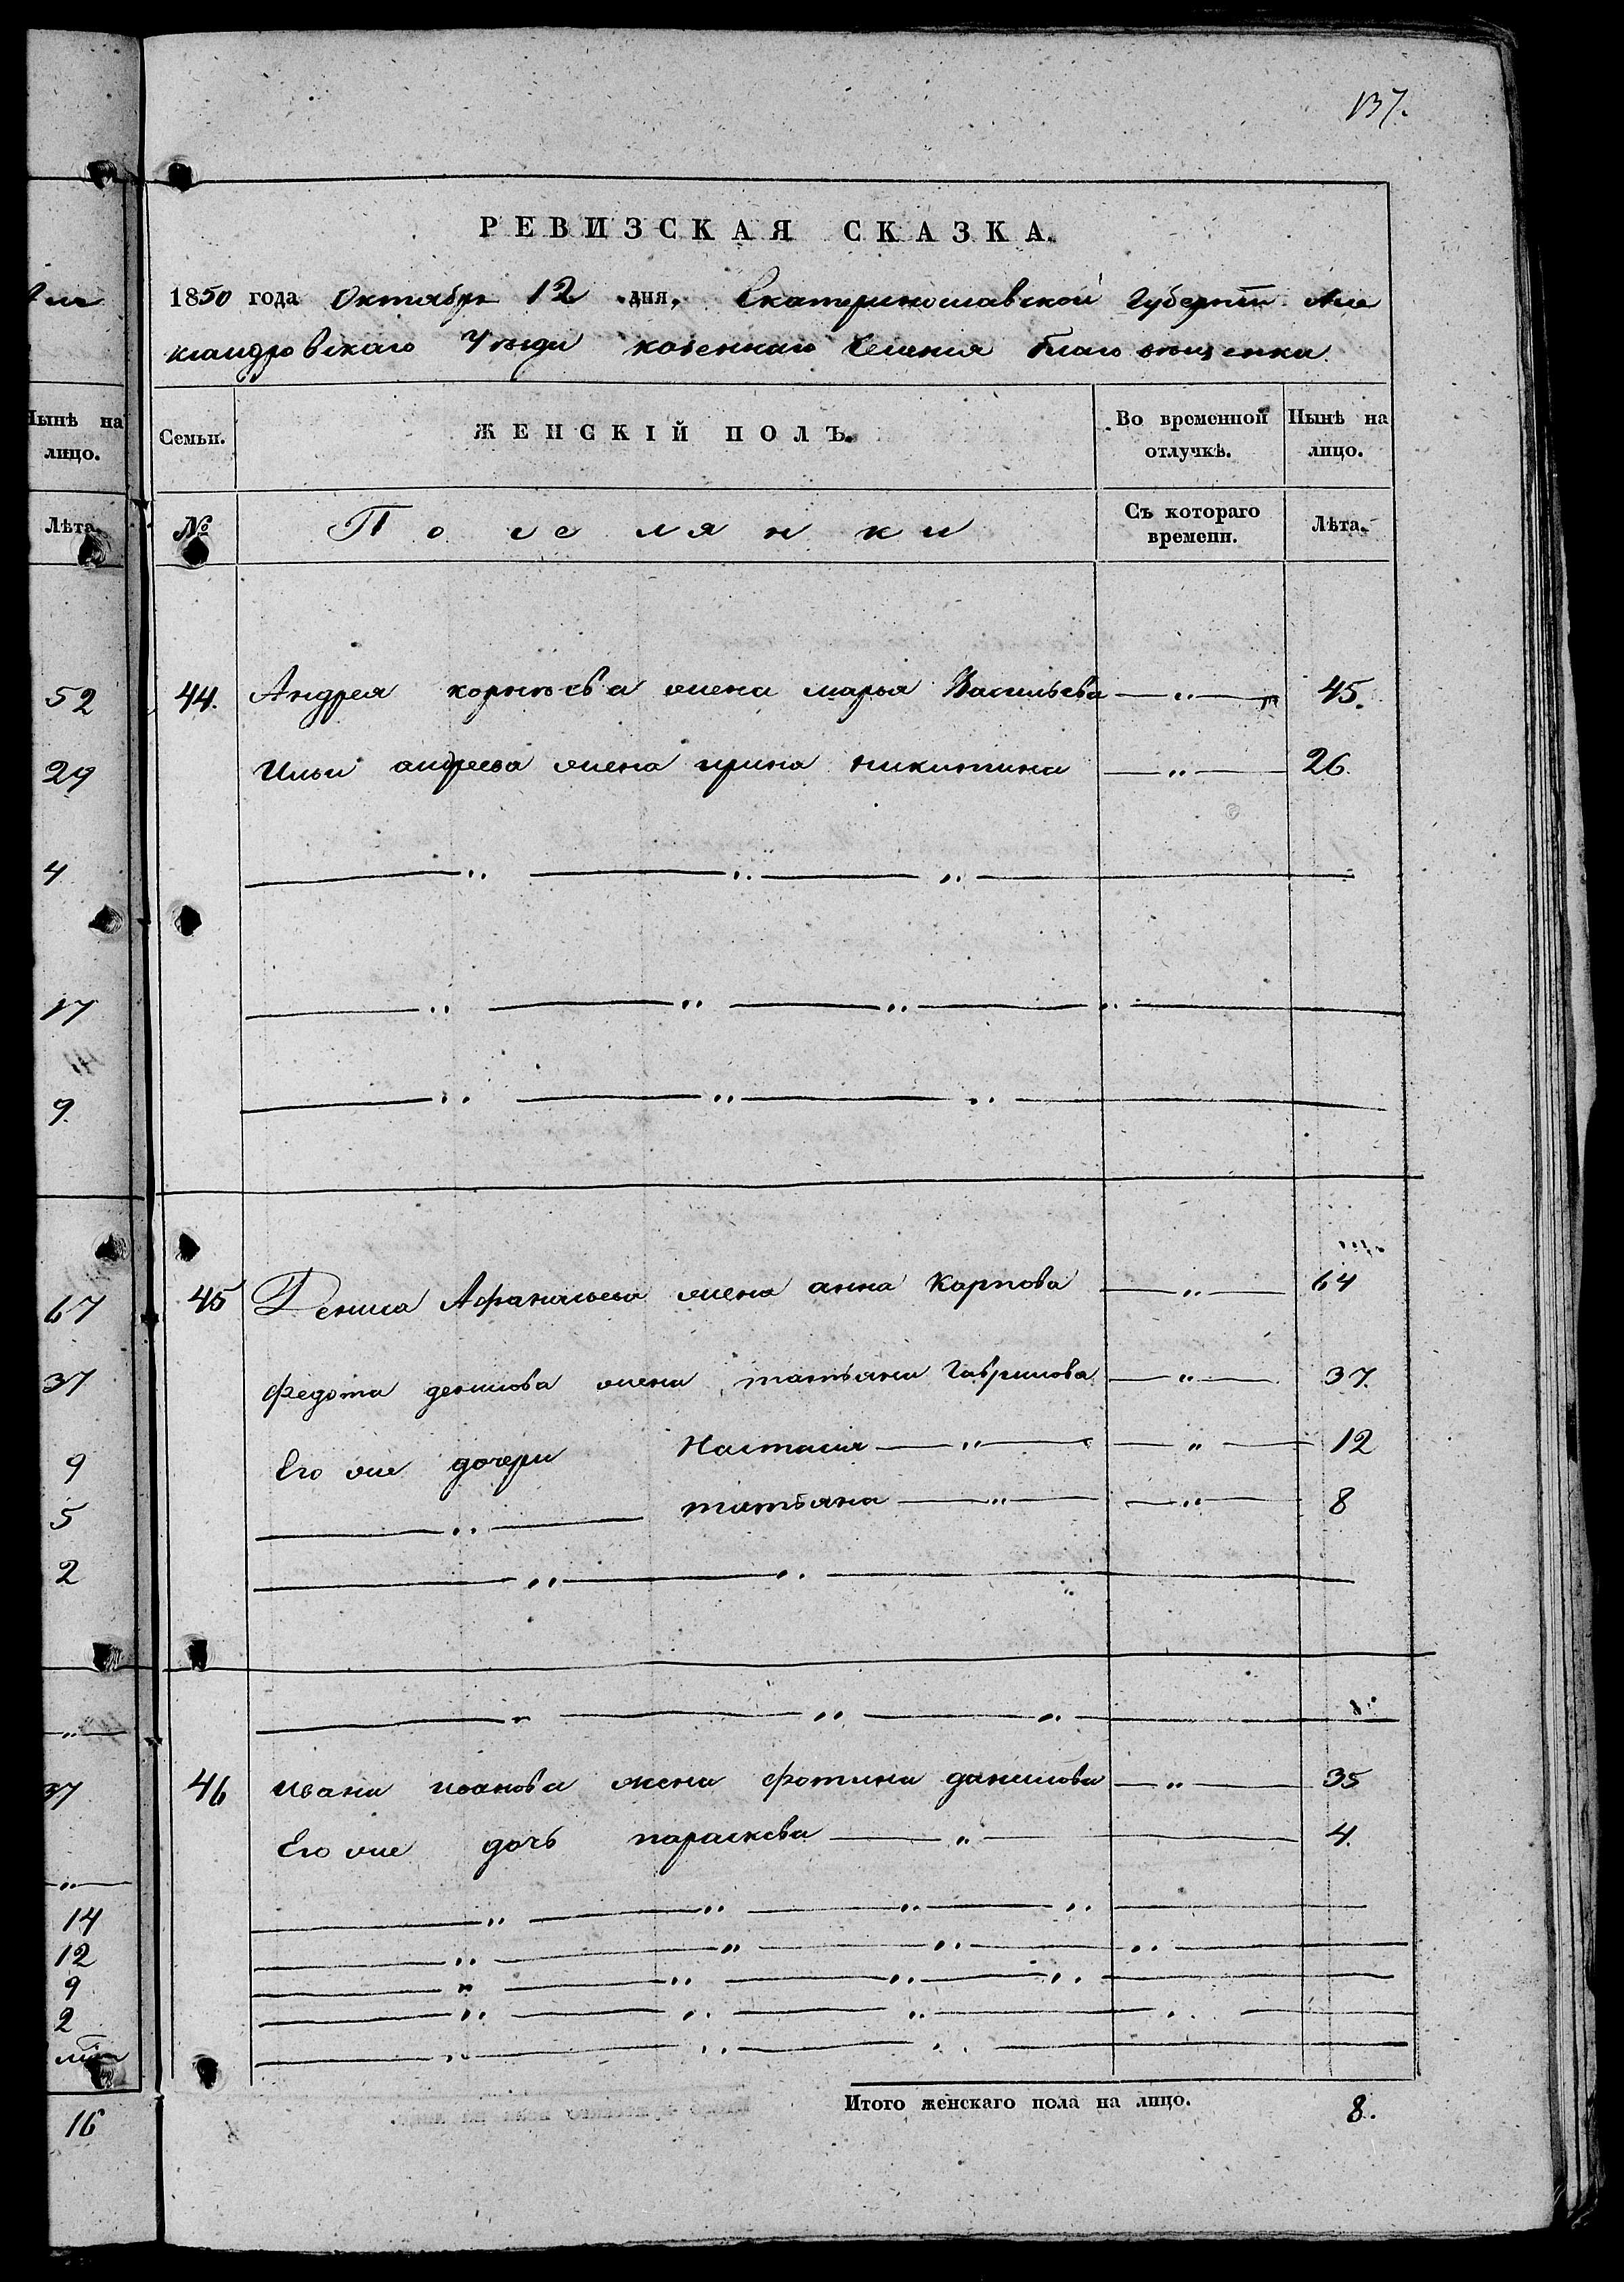 137.
РЕВИЗСКАЯ СКАЗКА.
1850 года Октября 12 дня. Екатеринославской Губернти Але
ксандровскаго Уезда казеннаго Селения благовещенка
Нынѣ на лицо.
Семьи.
ЖЕНСКІЙ ПОЛЪ.
Во временной отлучкѣ.
Нынѣ на лицо.
Лѣта.
№
Поселянки
Съ котораго времени.
Лѣта.
52
44. Андрея корнѣева жена марья Васильева — „ — 45.
29
Ильи андреева жена ирина никитина — „ — 26.
4
17
9.
67
45 Дениса Афанасьева жена анна Карпова — „ — 64
37
федота денисова жена татьяна Гаврилова — „ — 37.
9
Его же дочери Настасия — „ — — „ — 12
5
— „ — татьяна — „ — — „ — 8
2
37
46 ивана иванова жена фотина данилова — „ — 35
Его же дочь параскева — „ — 4.
14
12
9
2
16
Итого женскаго пола на лицо. 8.